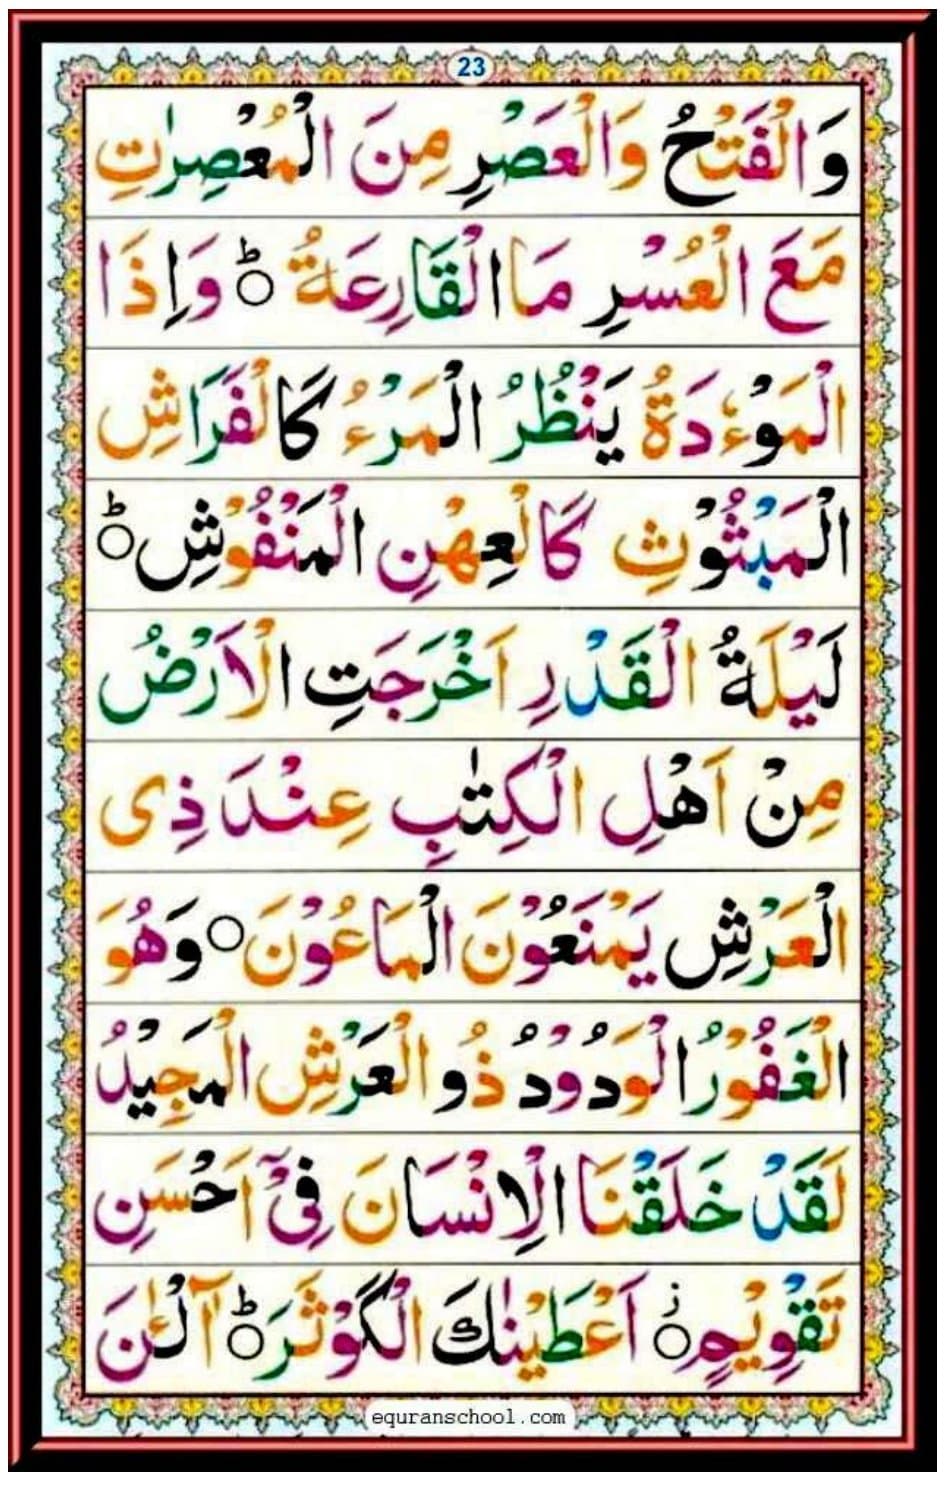 23
وَالْفَتْحُ وَالْعَصْرِ مِنَ الْمُعْصِرٰتِ
مَعَ الْعُسْرِ مَا الْقَارِعَةُ ؕ وَاِذَا
الْمَوْءٗدَةُ يَنْظُرُ الْمَرْءُ كَالْفَرَاشِ
الْمَبْثُوْثِ كَالْعِهْنِ الْمَنْفُوْشِ ؕ
لَيْلَةُ الْقَدْرِ اَخْرَجَتِ الْاَرْضُ
مِنْ اَهْلِ الْكِتٰبِ عِنْدَ ذِی
الْعَرْشِ يَمْنَعُوْنَ الْمَاعُوْنَ ○ وَهُوَ
الْغَفُوْرُ الْوَدُوْدُ ذُو الْعَرْشِ الْمَجِيْدُ
لَقَدْ خَلَقْنَا الْاِنْسَانَ فِیْۤ اَحْسَنِ
تَقْوِيْمٍ ؗ اَعْطَيْنٰكَ الْكَوْثَرَ ؕ آلْـٰٔنَ
equranschool.com